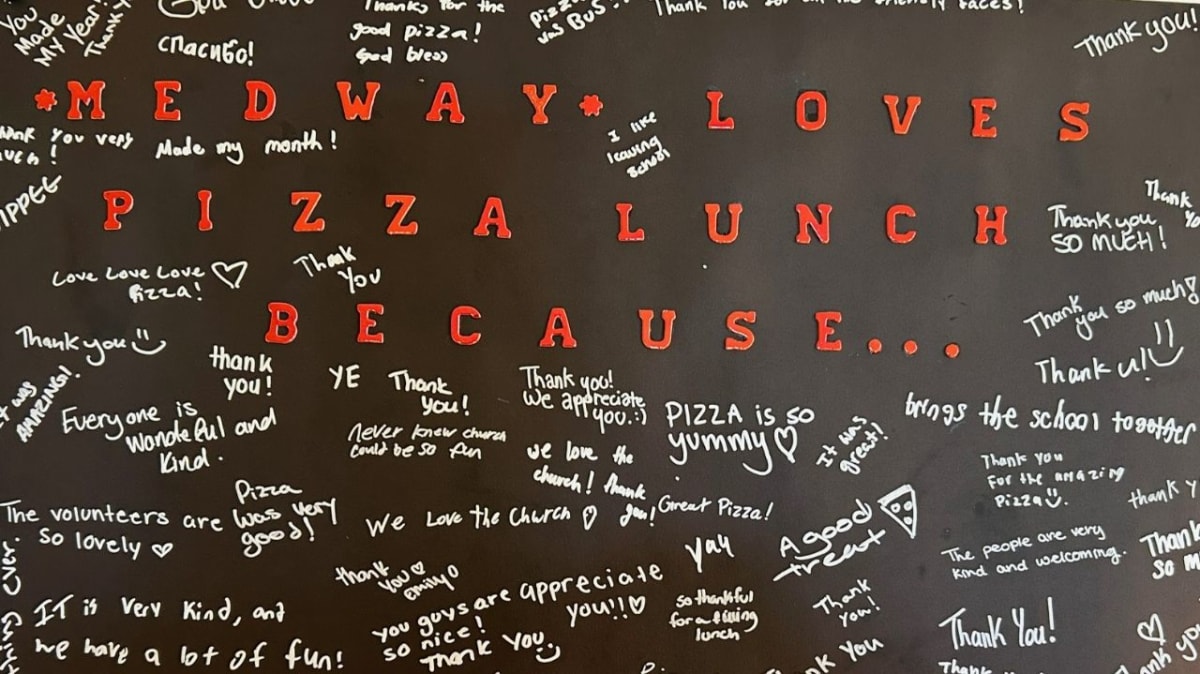 You
Made
My Year!
Thank
спасибо!
Thanks for the
good pizza!
God bless
Pizza
was Bus
Thank You
faces!
Thank you!
*MEDWAY* LOVES
You very
Made my month!
I like
leaving
school
PIZZA LUNCH
Thank
Thank you
SO MUCH!
Love Love Love
Pizza!
Thank
you
BECAUSE...
Thank
you so much!
Thank you
thank
you!
YE
Thank
you!
Thank you!
We appreciate
you.:)
Thank u!
was
AMAZING!
Everyone is
wondeful and
kind.
never knew church
could be so fun
we love the
church! Thank
you!
PIZZA is so
yummy
It was
great!
brings the school together
Thank you
For the amazing
Pizza
The volunteers are
so lovely
Pizza
was very
good!
We Love the Church
Great Pizza!
A good
treat
thank
yay
The people are very
kind and welcoming.
Thank
so
ever.
thank
you
Emily
you guys are appreciate
so nice! you!!
Thank you
so thankful
for
lunch
Thank
you!
IT is very kind, and
we have a lot of fun!
Thank You!
you
Thank you